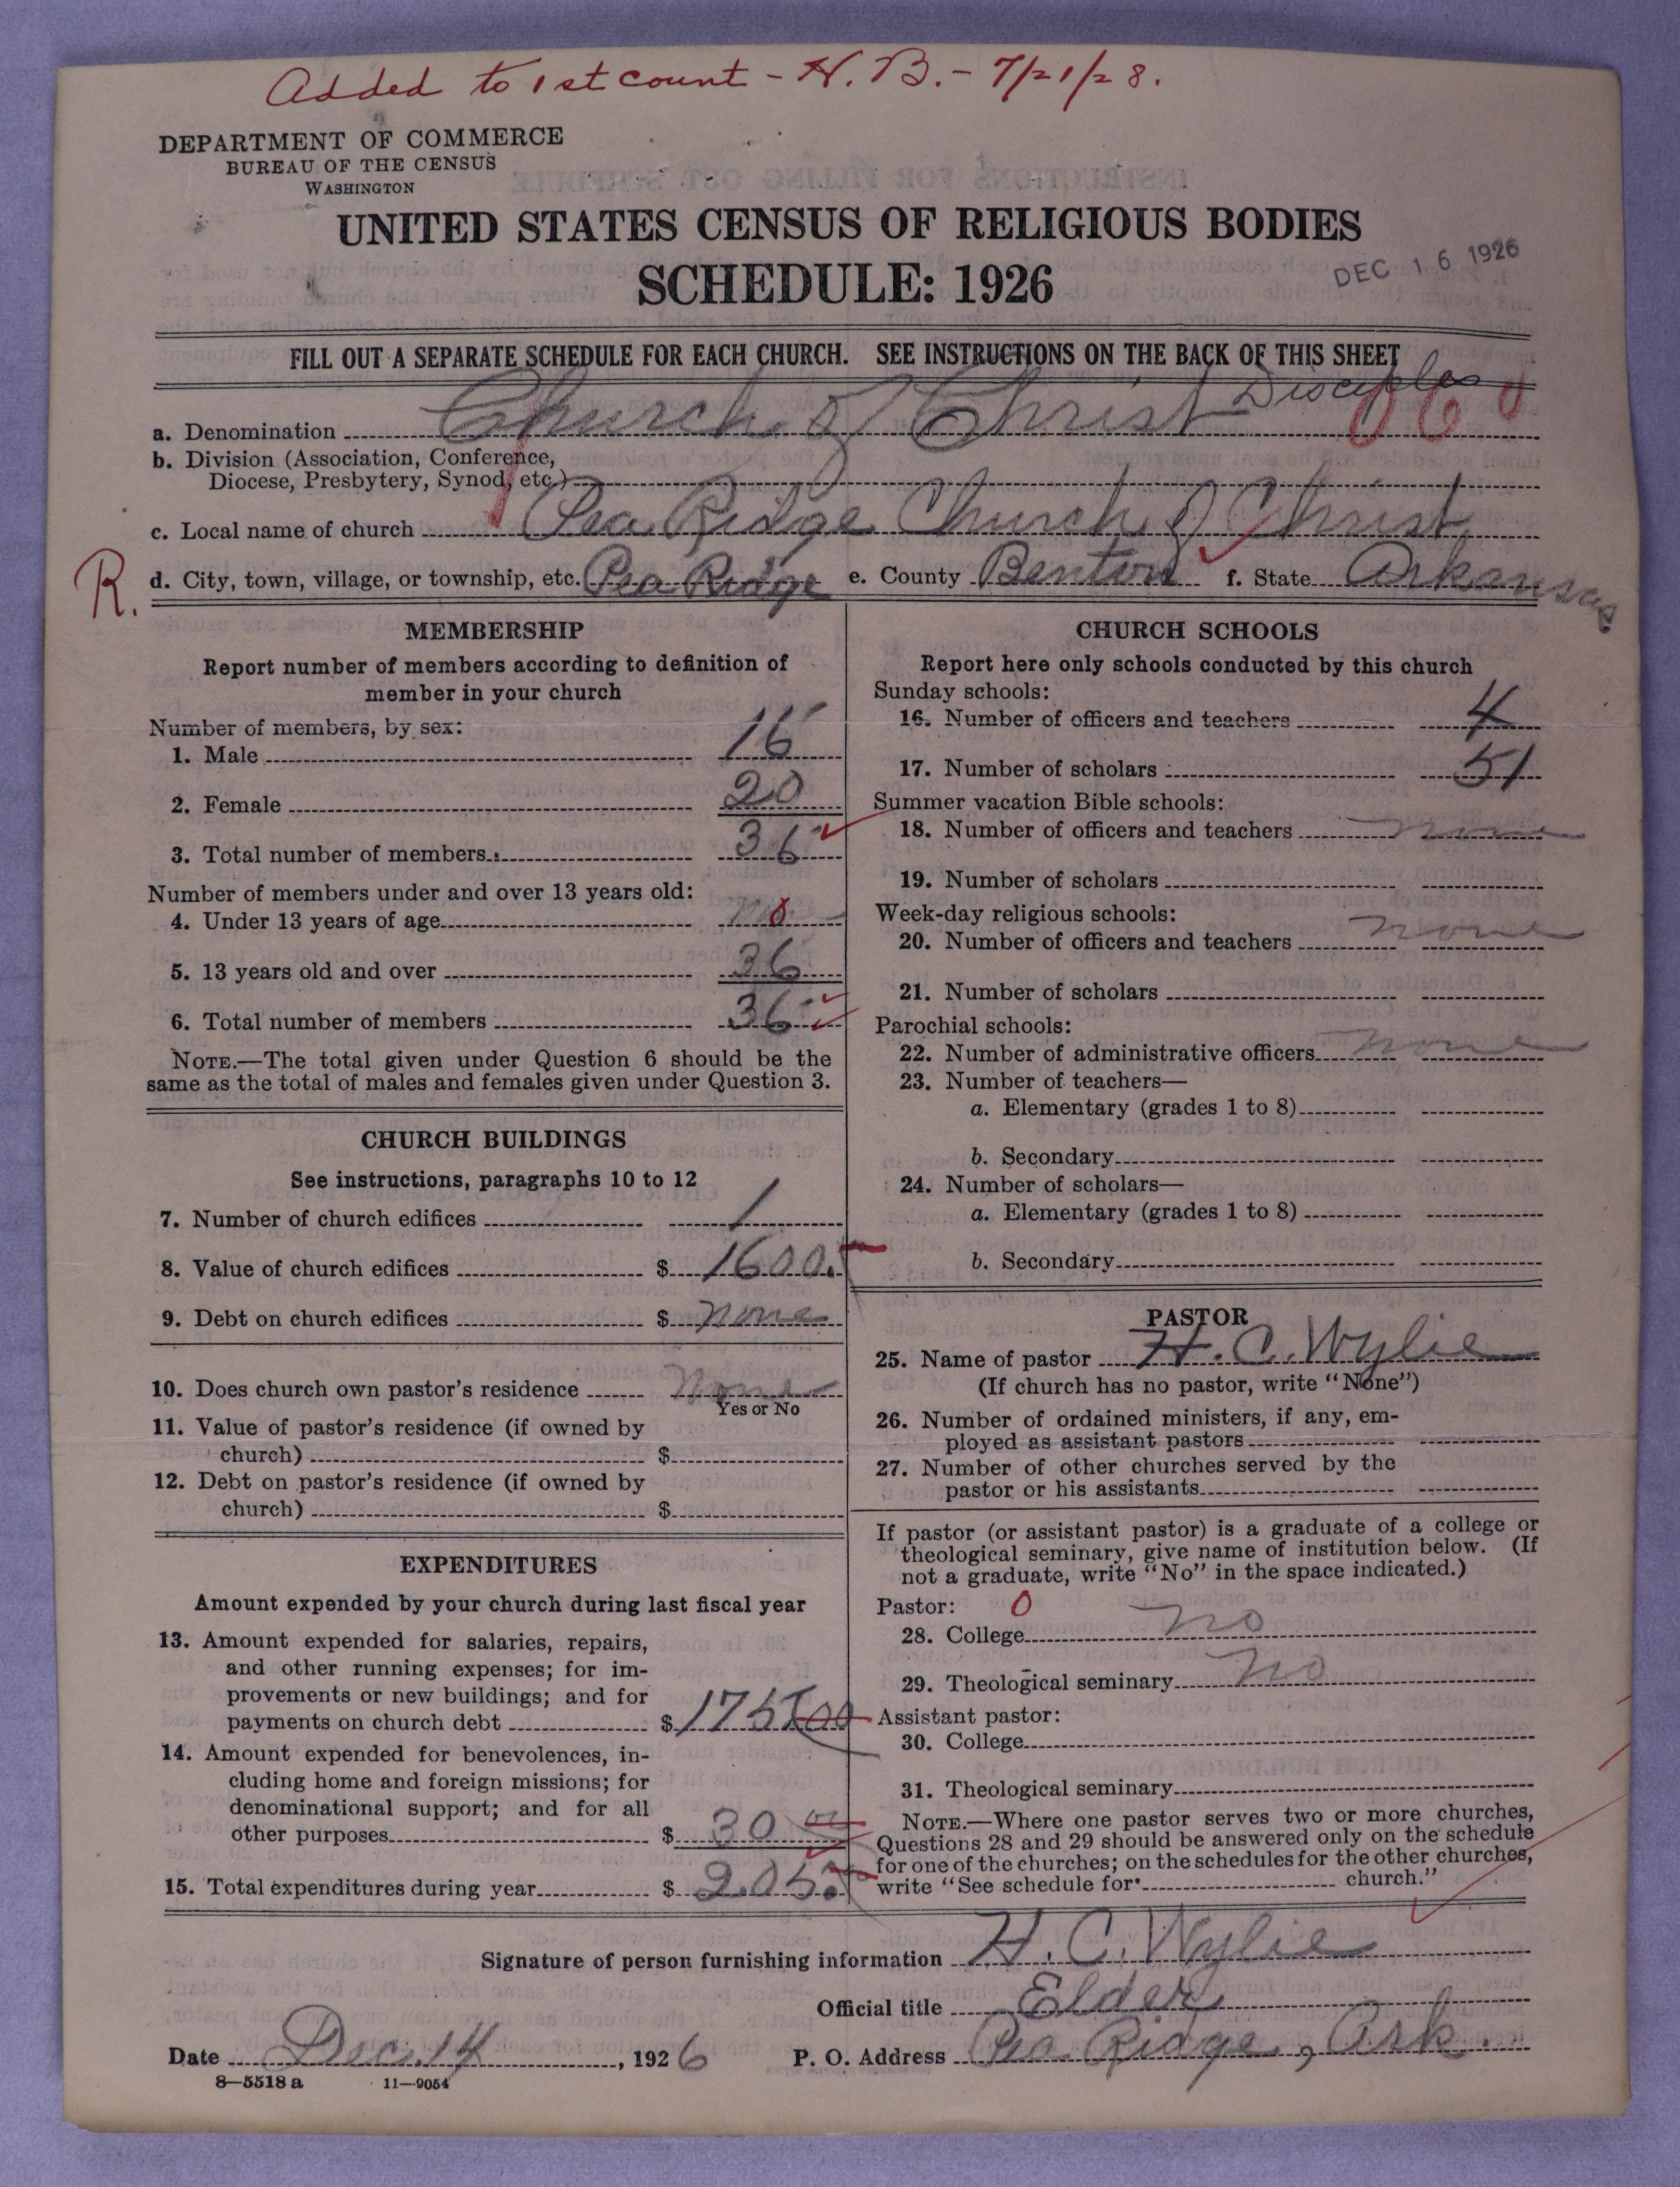 Added to 1st count - H. B. - 7/21/28.
DEPARTMENT OF COMMERCE
BUREAU OF THE CENSUS
WASHINGTON
UNITED STATES CENSUS OF RELIGIOUS BODIES
SCHEDULE: 1926
DEC 16 1926
FILL OUT A SEPARATE SCHEDULE FOR EACH CHURCH. SEE INSTRUCTIONS ON THE BACK OF THIS SHEET
Disciples
a. Denomination Church of Christ 060
b. Division (Association, Conference,
Diocese, Presbytery, Synod, etc.)
c. Local name of church Pea Ridge Church of Christ
R. d. City, town, village, or township, etc. Pea Ridge e. County Benton f. State Arkansas
MEMBERSHIP
Report number of members according to definition of
member in your church
Number of members, by sex:
1. Male 16
2. Female 20
3. Total number of members 36
Number of members under and over 13 years old:
4. Under 13 years of age no
5. 13 years old and over 36
6. Total number of members 36
NOTE.—The total given under Question 6 should be the
same as the total of males and females given under Question 3.
CHURCH BUILDINGS
See instructions, paragraphs 10 to 12
7. Number of church edifices 1
8. Value of church edifices $ 1600.
9. Debt on church edifices $ none
10. Does church own pastor's residence None
Yes or No
11. Value of pastor's residence (if owned by
church) $
12. Debt on pastor's residence (if owned by
church) $
EXPENDITURES
Amount expended by your church during last fiscal year
13. Amount expended for salaries, repairs,
and other running expenses; for im-
provements or new buildings; and for
payments on church debt $ 175.00
14. Amount expended for benevolences, in-
cluding home and foreign missions; for
denominational support; and for all
other purposes $ 30 00
15. Total expenditures during year $ 205.
CHURCH SCHOOLS
Report here only schools conducted by this church
Sunday schools:
16. Number of officers and teachers 4
17. Number of scholars 51
Summer vacation Bible schools:
18. Number of officers and teachers none
19. Number of scholars
Week-day religious schools:
20. Number of officers and teachers none
21. Number of scholars
Parochial schools:
22. Number of administrative officers none
23. Number of teachers—
a. Elementary (grades 1 to 8)
b. Secondary
24. Number of scholars—
a. Elementary (grades 1 to 8)
b. Secondary
PASTOR
25. Name of pastor H. C. Wylie
(If church has no pastor, write "None")
26. Number of ordained ministers, if any, em-
ployed as assistant pastors
27. Number of other churches served by the
pastor or his assistants
If pastor (or assistant pastor) is a graduate of a college or
theological seminary, give name of institution below. (If
not a graduate, write "No" in the space indicated.)
Pastor: 0
28. College no
29. Theological seminary no
Assistant pastor:
30. College
31. Theological seminary
NOTE.—Where one pastor serves two or more churches,
Questions 28 and 29 should be answered only on the schedule
for one of the churches; on the schedules for the other churches,
write "See schedule for church."
Signature of person furnishing information H. C. Wylie
Official title Elder
Date Dec. 14, 1926 P. O. Address Pea Ridge, Ark.
8—5518 a 11—9054